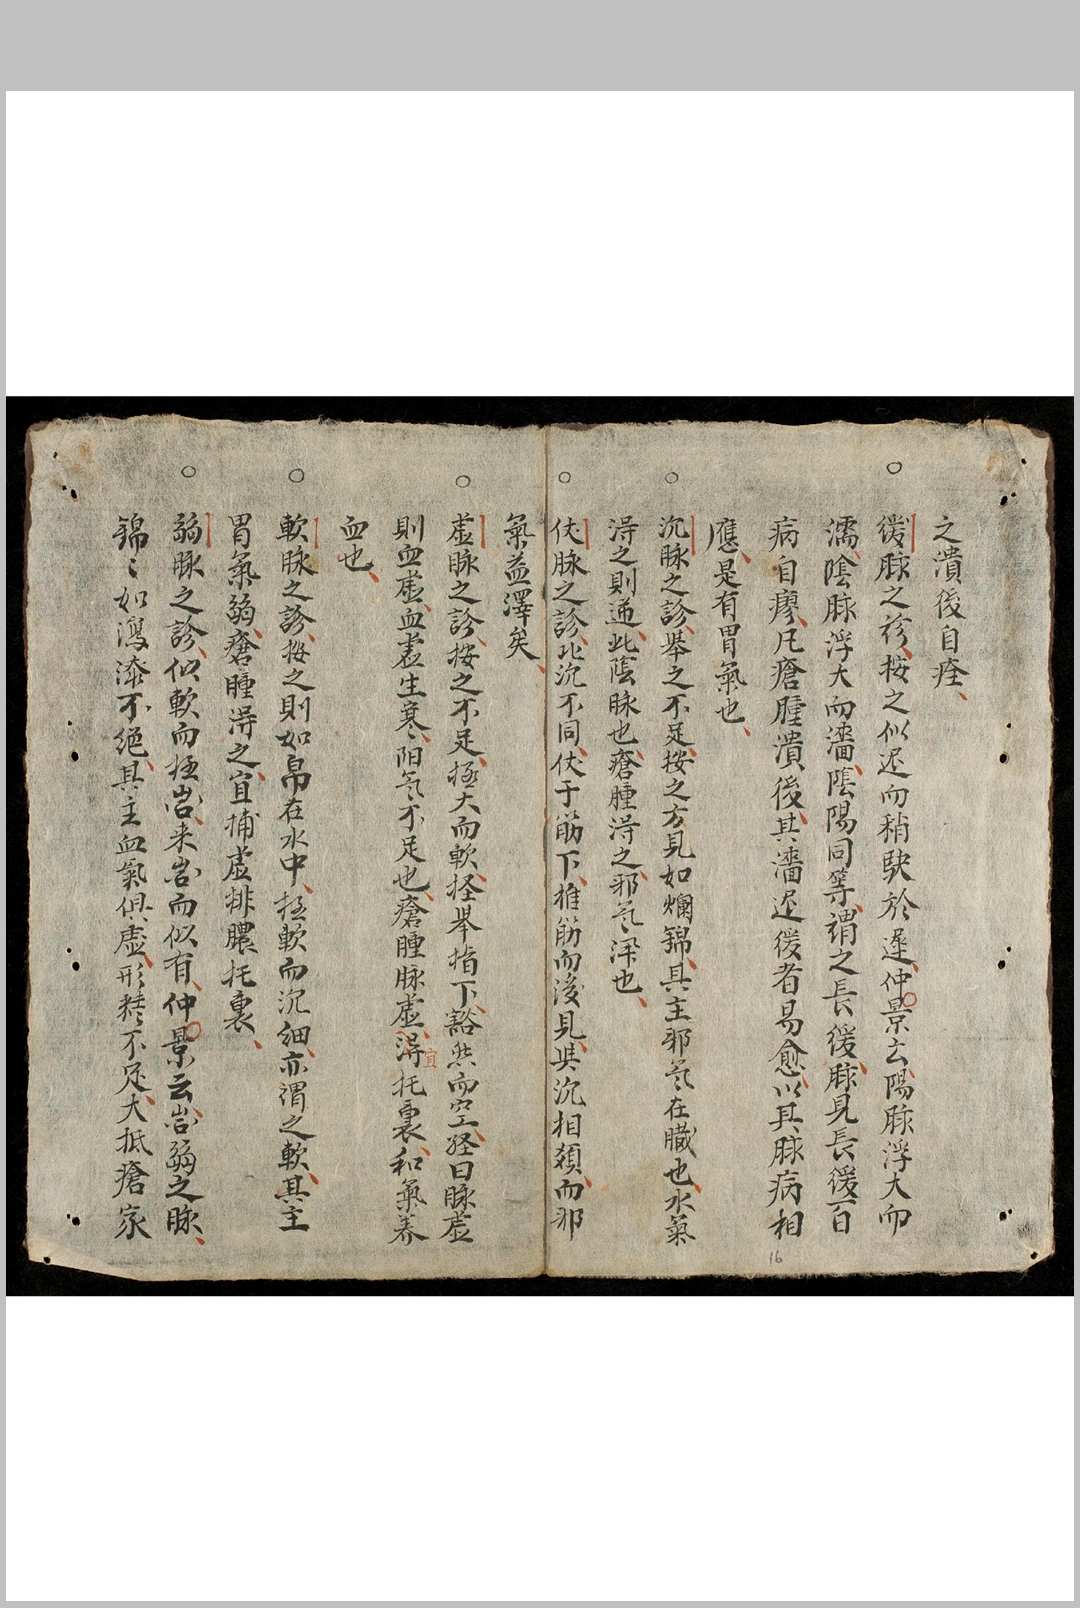 之潰後自痊、
緩脉之診、按之似迟而稍駃於遅、仲景云陽脉浮大而
濡、陰脉浮大而濡、陰陽同等、謂之長緩、脉見長緩百
病自瘳、凡瘡腫潰後、其濡迟緩者易愈、以其脉病相
應、是有胃氣也、
沉脉之診、舉之不足、按之方見如爛錦、其主邪氣在臓也、水氣
淂之則逆、此陰脉也、瘡腫淂之、邪氣深也、
伏脉之診、比沉不同、伏于筋下、推筋而後見、與沉相類、而邪
氣益澤矣、
虚脉之診、按之不足、極大而軟、軽舉指下、豁然而空、経曰脉虚
則血虚、血虚生寒、陽氣不足也、瘡腫脉虚、淂宜托裏、和氣養
血也、
軟脉之診、按之則如帛在水中、極軟而沉細、亦謂之軟、其主
胃氣弱、瘡腫淂之、宜補虚排膿托裏、
弱脉之診、似軟而極微、来微而似有、仲景云微弱之脉、
錦〻如瀉漆不絶、其主血氣俱虚、形精不足、大抵瘡家
16